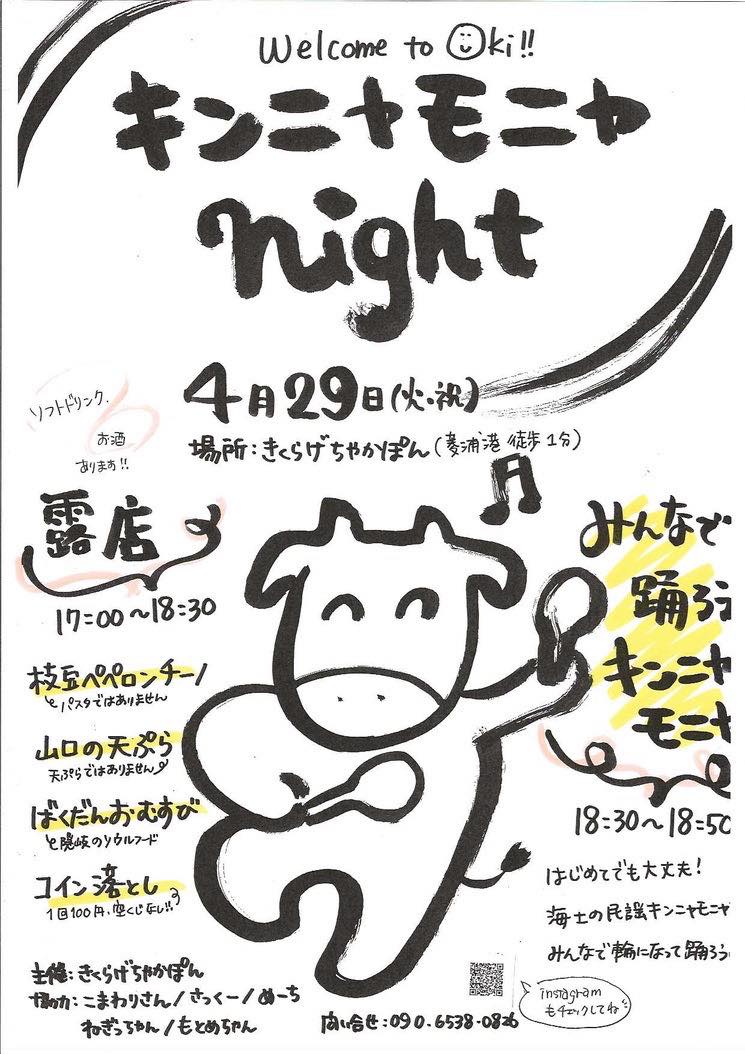 Welcome to Oki!!
キンニャモニャ
night
4月29日(火・祝)
場所:きくらげちゃかぽん(菱浦港 徒歩1分)
ソフトドリンク、
お酒
あります!!
露店
17:00～18:30
枝豆ペペロンチーノ
パスタではありません
山口の天ぷら
天ぷらではありません
ばくだんおむすび
隠岐のソウルフード
コイン落とし
1回100円、空くじなし!!
みんなで
踊ろう
キンニャ
モニャ
18:30～18:50
はじめてでも大丈夫!
海士の民謡キンニャモニャ
みんなで輪になって踊ろう
主催:きくらげちゃかぽん
協力:こまわりさん/さっくー/めーち
ねぎっちゃん/もとめちゃん
問い合せ:090.6538-0826
instagram
もチェックしてね